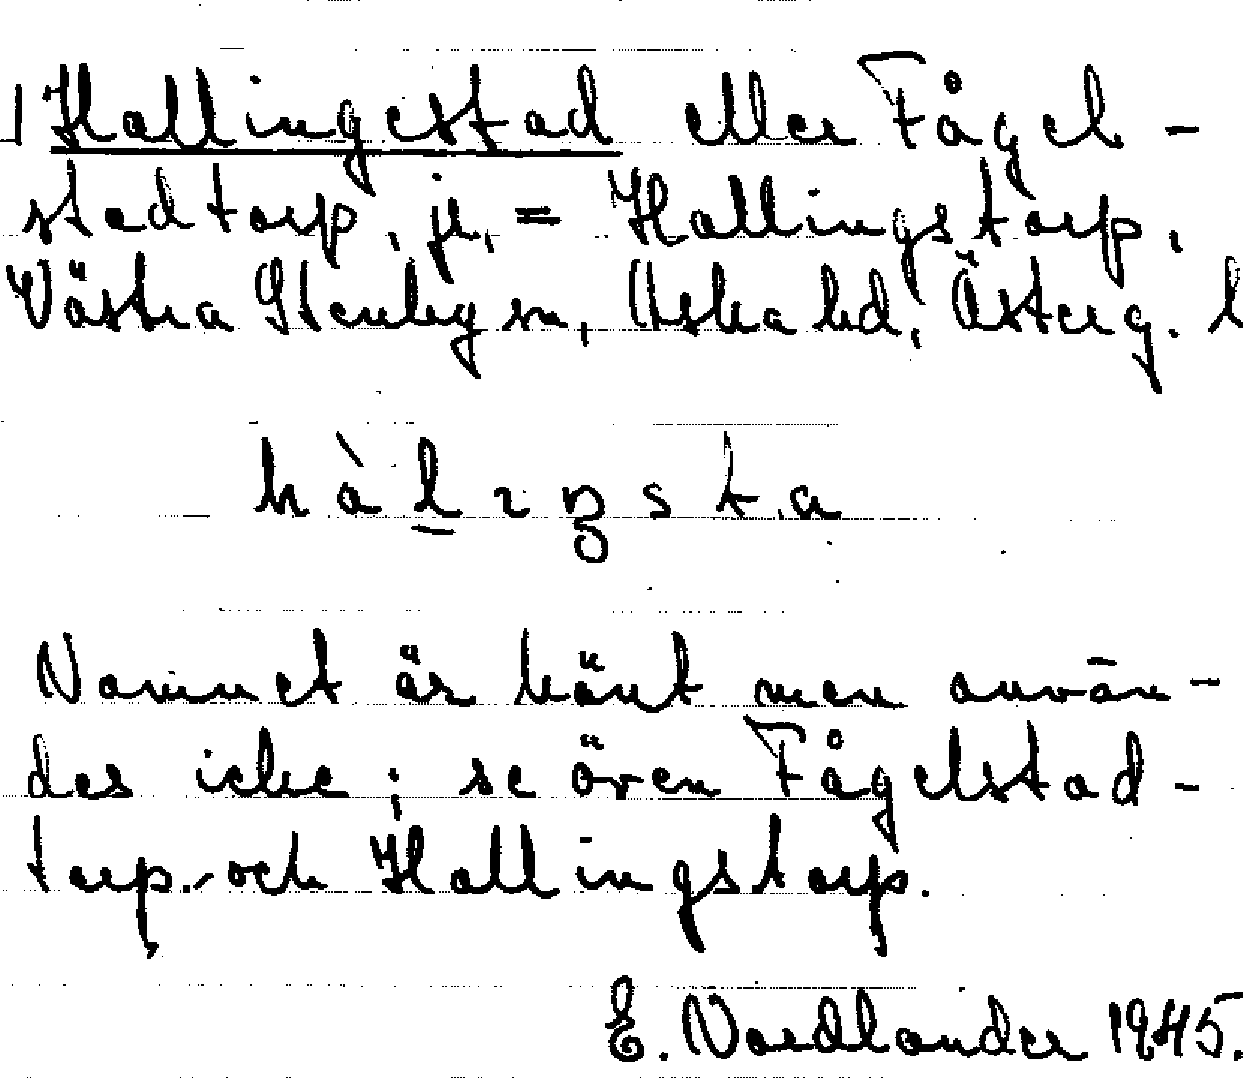 1 Hallingestad eller Fågel-
stadtorp, je, = Hallingstorp,
Västra Stenby sn, Aska hd, Österg. l
hàlıŋsta
Namnet är känt men använ-
des icke; se även Fågelstad-
torp och Hallingstorp.
E. Nordlander 1945.